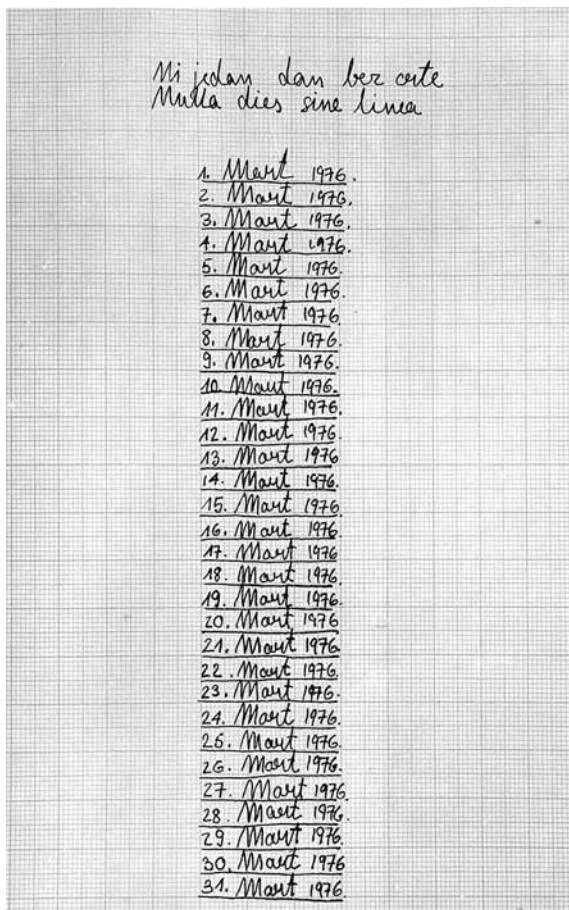 Ni jedan dan bez crte
Nulla dies sine linea
1. Mart 1976.
2. Mart 1976.
3. Mart 1976.
4. Mart 1976.
5. Mart 1976.
6. Mart 1976.
7. Mart 1976.
8. Mart 1976.
9. Mart 1976.
10. Mart 1976.
11. Mart 1976.
12. Mart 1976.
13. Mart 1976
14. Mart 1976.
15. Mart 1976
16. Mart 1976.
17. Mart 1976
18. Mart 1976.
19. Mart 1976.
20. Mart 1976
21. Mart 1976
22. Mart 1976.
23. Mart 1976.
24. Mart 1976.
25. Mart 1976.
26. Mart 1976.
27. Mart 1976.
28. Mart 1976.
29. Mart 1976.
30. Mart 1976
31. Mart 1976.